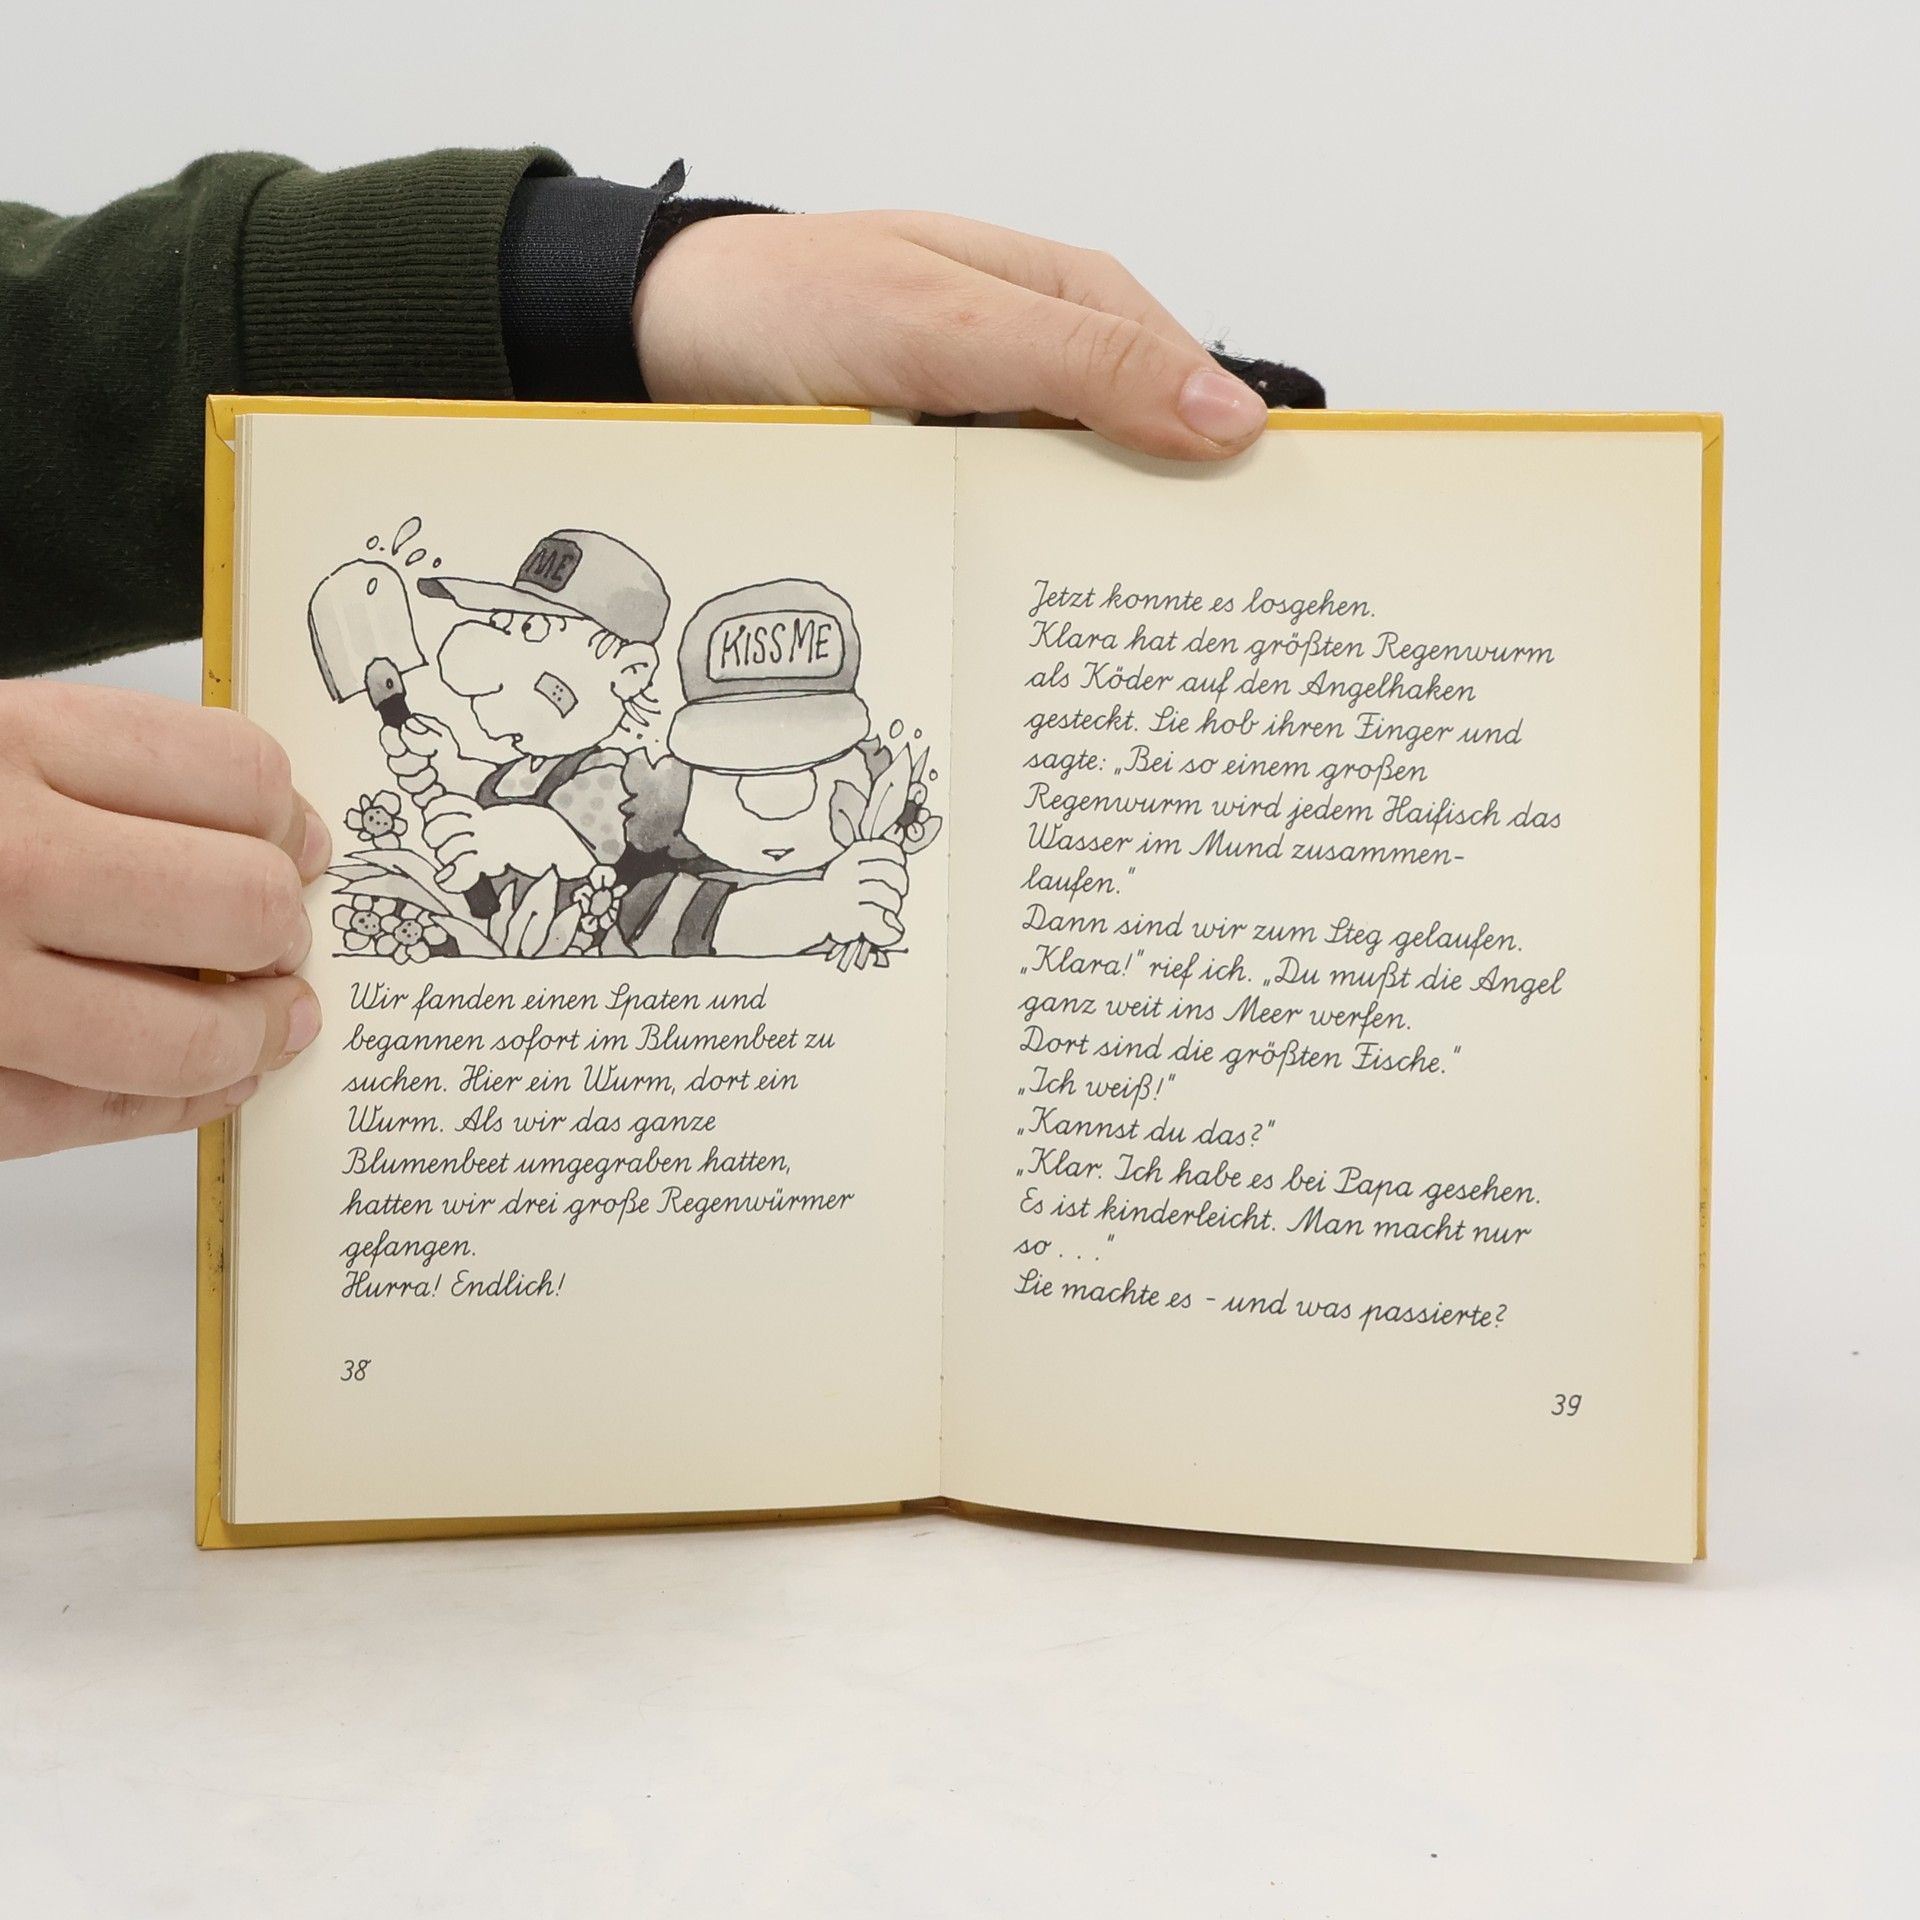 ME
KISS ME
Wir fanden einen Spaten und
begannen sofort im Blumenbeet zu
suchen. Hier ein Wurm, dort ein
Wurm. Als wir das ganze
Blumenbeet umgegraben hatten,
hatten wir drei große Regenwürmer
gefangen.
Hurra! Endlich!
38
Jetzt konnte es losgehen.
Klara hat den größten Regenwurm
als Köder auf den Angelhaken
gesteckt. Sie hob ihren Finger und
sagte: „Bei so einem großen
Regenwurm wird jedem Haifisch das
Wasser im Mund zusammen-
laufen."
Dann sind wir zum Steg gelaufen.
„Klara!" rief ich. „Du mußt die Angel
ganz weit ins Meer werfen.
Dort sind die größten Fische."
„Ich weiß!"
„Kannst du das?"
„Klar. Ich habe es bei Papa gesehen.
Es ist kinderleicht. Man macht nur
so . . ."
Sie machte es – und was passierte?
39